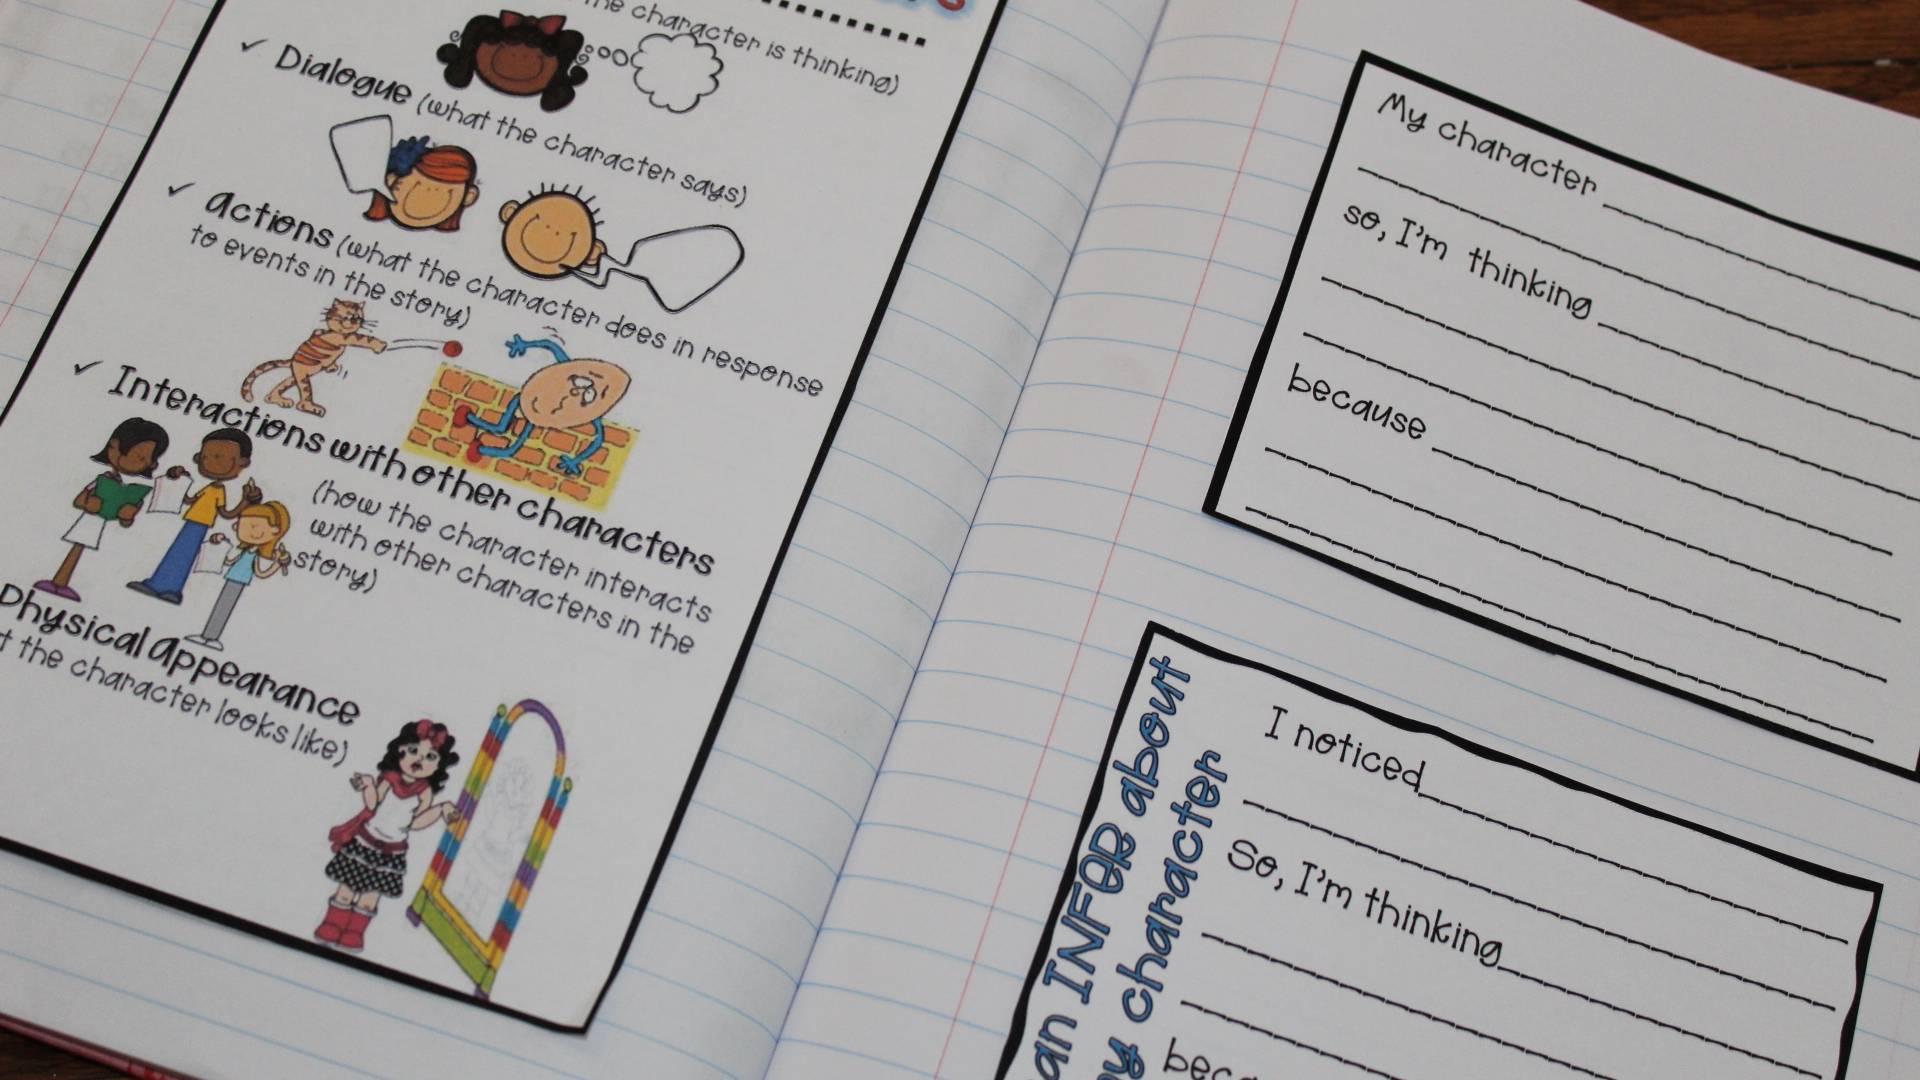 the character is thinking)
✓ Dialogue (what the character says)
✓ Actions (what the character does in response
to events in the story)
✓ Interactions with other characters
(how the character interacts
with other characters in the
story)
Physical Appearance
the character looks like)
My character
so, I'm thinking
because
INFER about
character
I noticed
So, I'm thinking